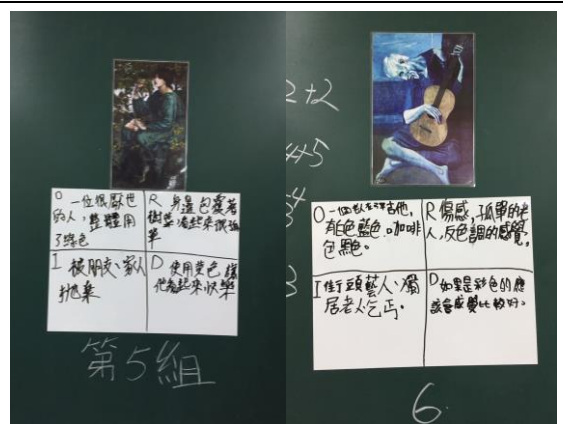 O 一位很厭世
的人，整體用
了綠色
R 身邊包覆著
樹葉凑起來很孤
單
I 被朋友、家人
拋棄
D 使用黃色，樣
他看起來快樂
第5組
2+2
4+5
O 一個人在彈吉他，
有白色藍色。咖啡
色黑色。
R 傷感，孤單的老
人，灰色調的感覺。
I 街頭藝人、獨
居老人乞丐。
D 如果是彩色的應
該會感覺比較好。
6.